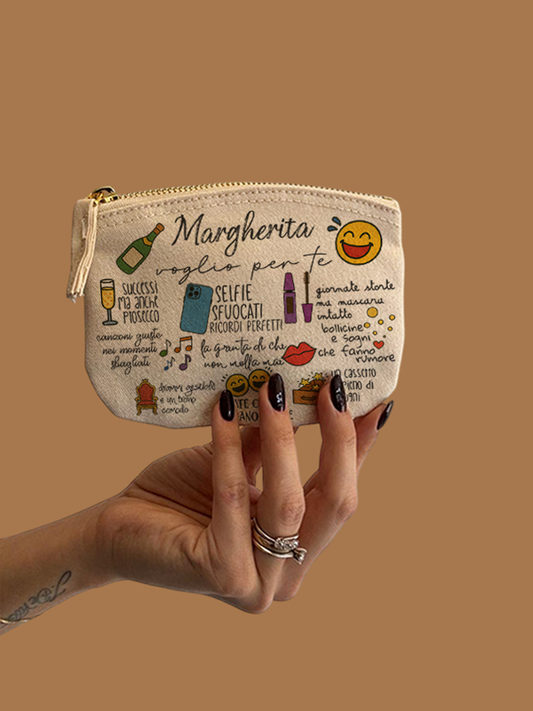 Margherita
voglio per te
SUCCESSI
MA ANCHE
PROSECCO
SELFIE
SFUOCATI
RICORDI PERFETTI
giornate storte
ma mascara
intatto
canzoni giuste
nei momenti
sbagliati
la grinta di chi
non molla mai
bollicine
e sogni
che fanno
rumore
e un trono
comodo
un cassetto
pieno di